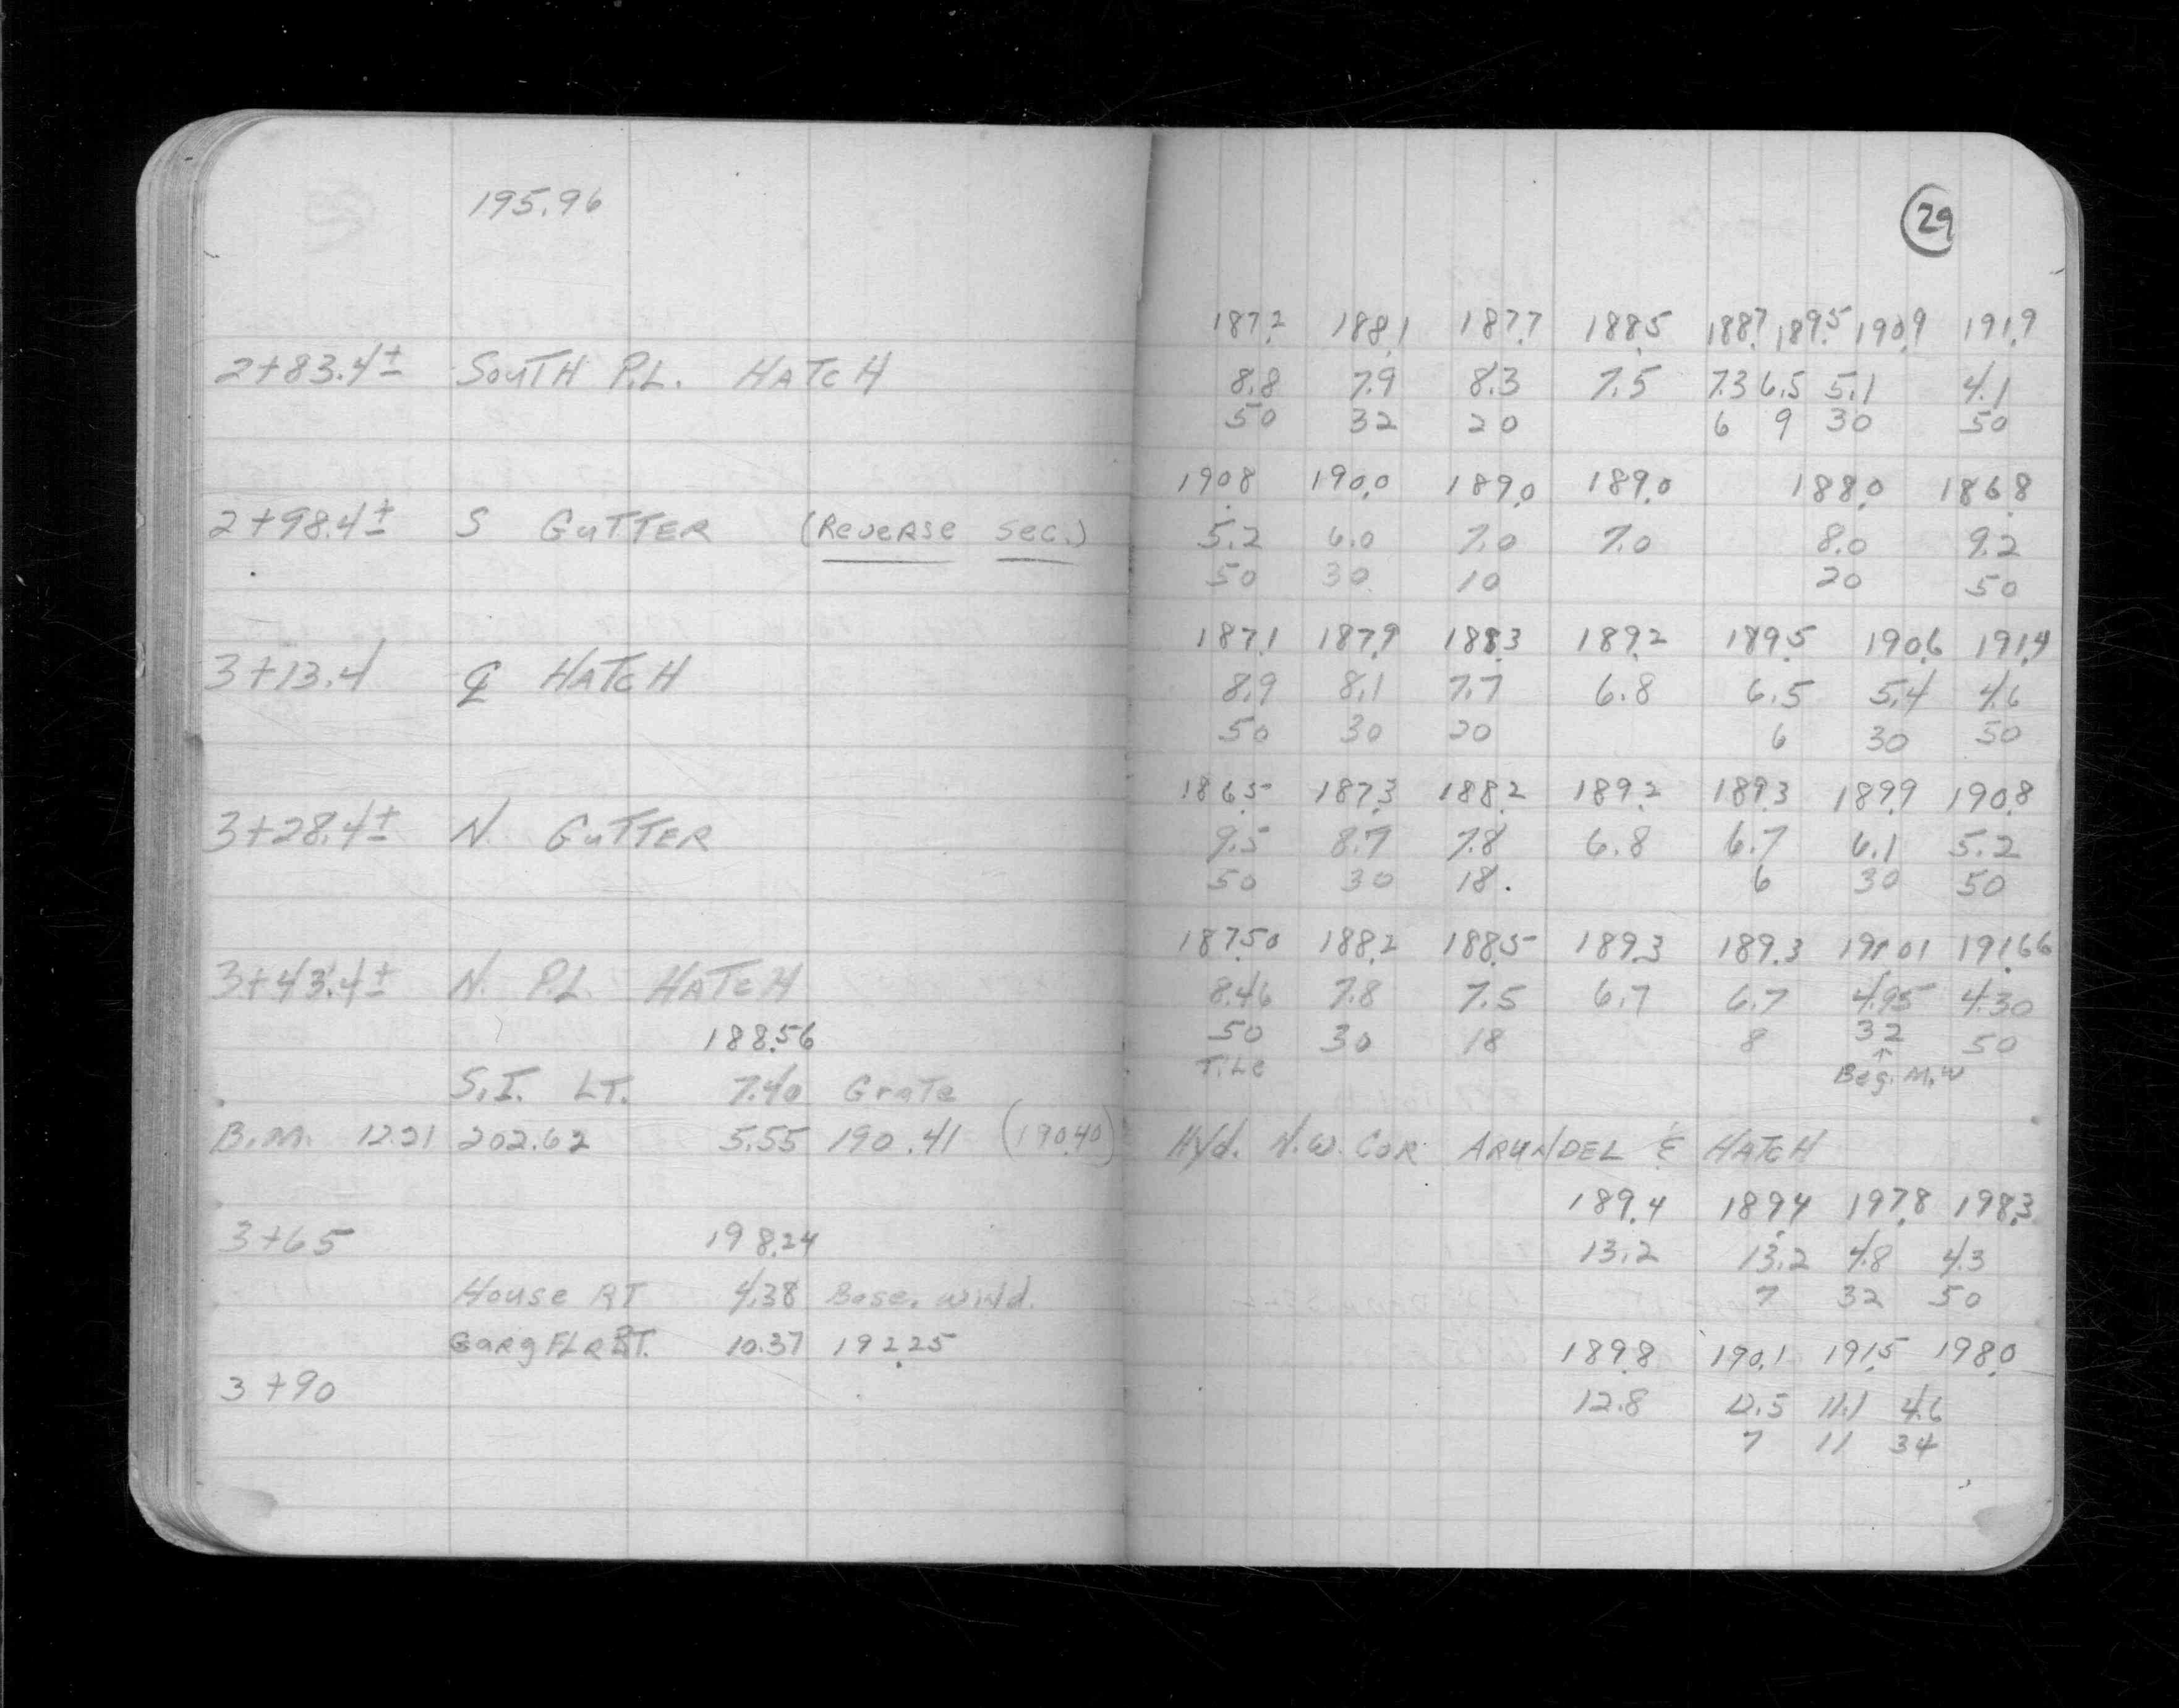 195.96
29
187.2 188.1 187.7 188.5 188.7 189.5 190.9 191.9
2+83.4± SOUTH P.L. HATCH 8.8 7.9 8.3 7.5 7.3 6.5 5.1 4.1
50 32 20 6 9 30 50
190.8 190.0 189.0 189.0 188.0 186.8
2+98.4± S GUTTER (Reverse Sec.) 5.2 6.0 7.0 7.0 8.0 9.2
50 30 10 20 50
187.1 187.9 188.3 189.2 189.5 190.6 191.4
3+13.4 ℄ HATCH 8.9 8.1 7.7 6.8 6.5 5.4 4.6
50 30 20 6 30 50
186.5 187.3 188.2 189.2 189.3 189.9 190.8
3+28.4± N. GUTTER 9.5 8.7 7.8 6.8 6.7 6.1 5.2
50 30 18. 6 30 50
187.50 188.2 188.5 189.3 189.3 191.01 191.66
3+43.4± N. P.L. HATCH 8.46 7.8 7.5 6.7 6.7 4.95 4.30
188.56 50 30 18 8 32 50
S.I. LT. 7.40 Grate T.Le ↑ Beg. M.W
B.M. 12.21 202.62 5.55 190.41 (190.40) Hyd. N.W. COR ARUNDEL & HATCH
189.4 189.4 197.8 198.3
3+65 198.24 13.2 13.2 4.8 4.3
House RT 4.38 Base. Wind. 7 32 50
Garg FLR RT. 10.37 192.25 189.8 190.1 191.5 198.0
3+90 12.8 12.5 11.1 4.6
7 11 34